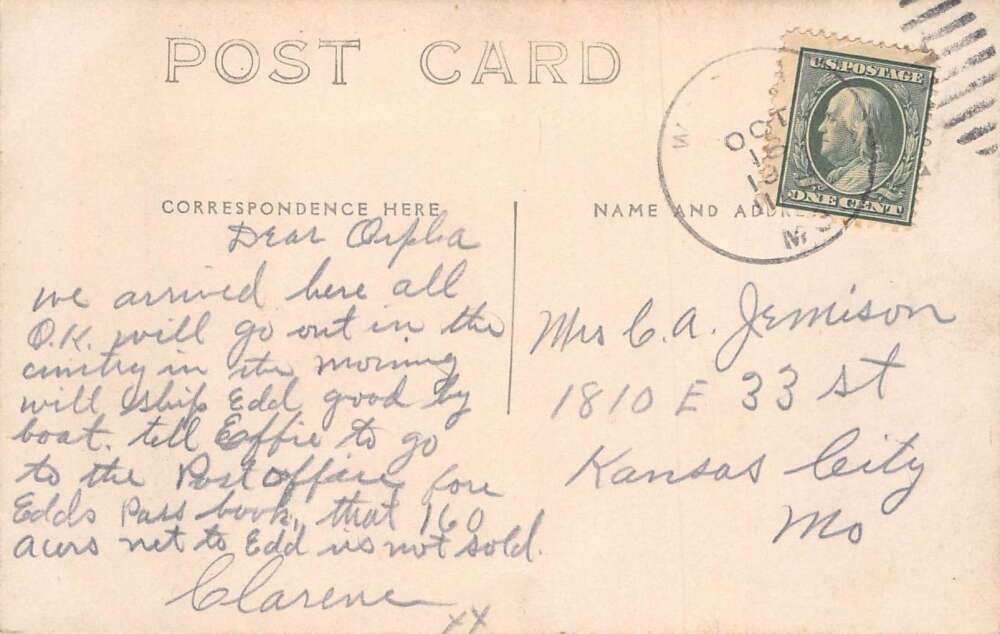 POST CARD
CORRESPONDENCE HERE
NAME AND ADDRE
U.S. POSTAGE
ONE CENT
W
OCT
MO
Dear Orpha
we arrived here all
O.K. will go out in the
cuntry in the morning
will ship Edd good by
boat. tell Effie to go
to the Post offaice fore
Edds Pass book, that 160
acers net to Edd is not sold.
Clarence
xx
Mrs C. A. Jemison
1810 E 33 st
Kansas City
Mo